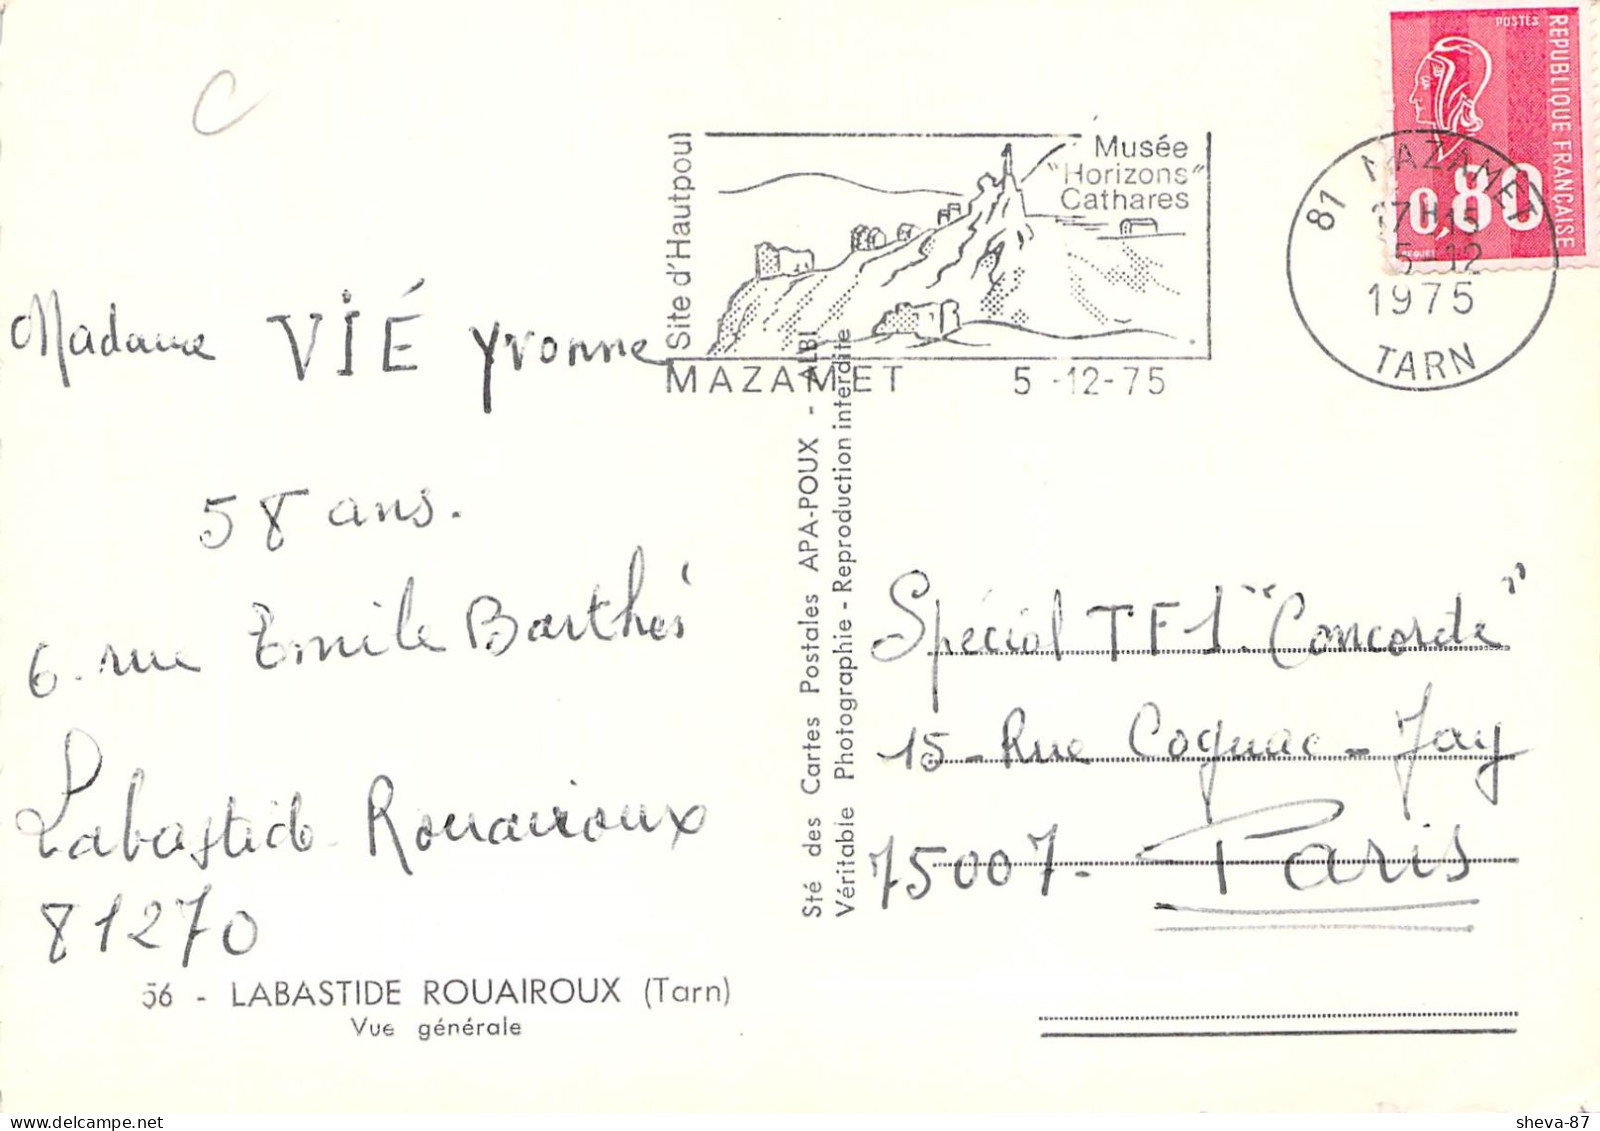 C
Madame VIÉ Yvonne
58 ans.
6. rue Emile Barthés
Labastide Rouairoux
81270
56 - LABASTIDE ROUAIROUX (Tarn)
Vue générale
Sté des Cartes Postales APA-POUX - ALBI
Véritable Photographie - Reproduction interdite
Site d'Hautpoul
Musée
"Horizons"
Cathares
MAZAMET 5 -12-75
81 MAZAMET
17H15
5-12
1975
TARN
POSTES
REPUBLIQUE FRANÇAISE
0,80
BEQUET
Spécial TF1 "Concorde"
15 - Rue Cognac - Jay
75007 - Paris
sheva-87